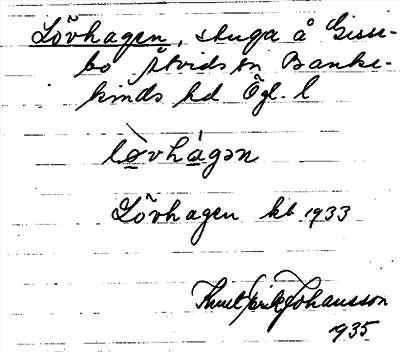 Lövhagen, stuga å Gisse-
bo Åtvids sn Banke-
kinds hd Ögl. l
lòvhágən
Lövhagen kb 1933
Knut Erik Johansson
1935